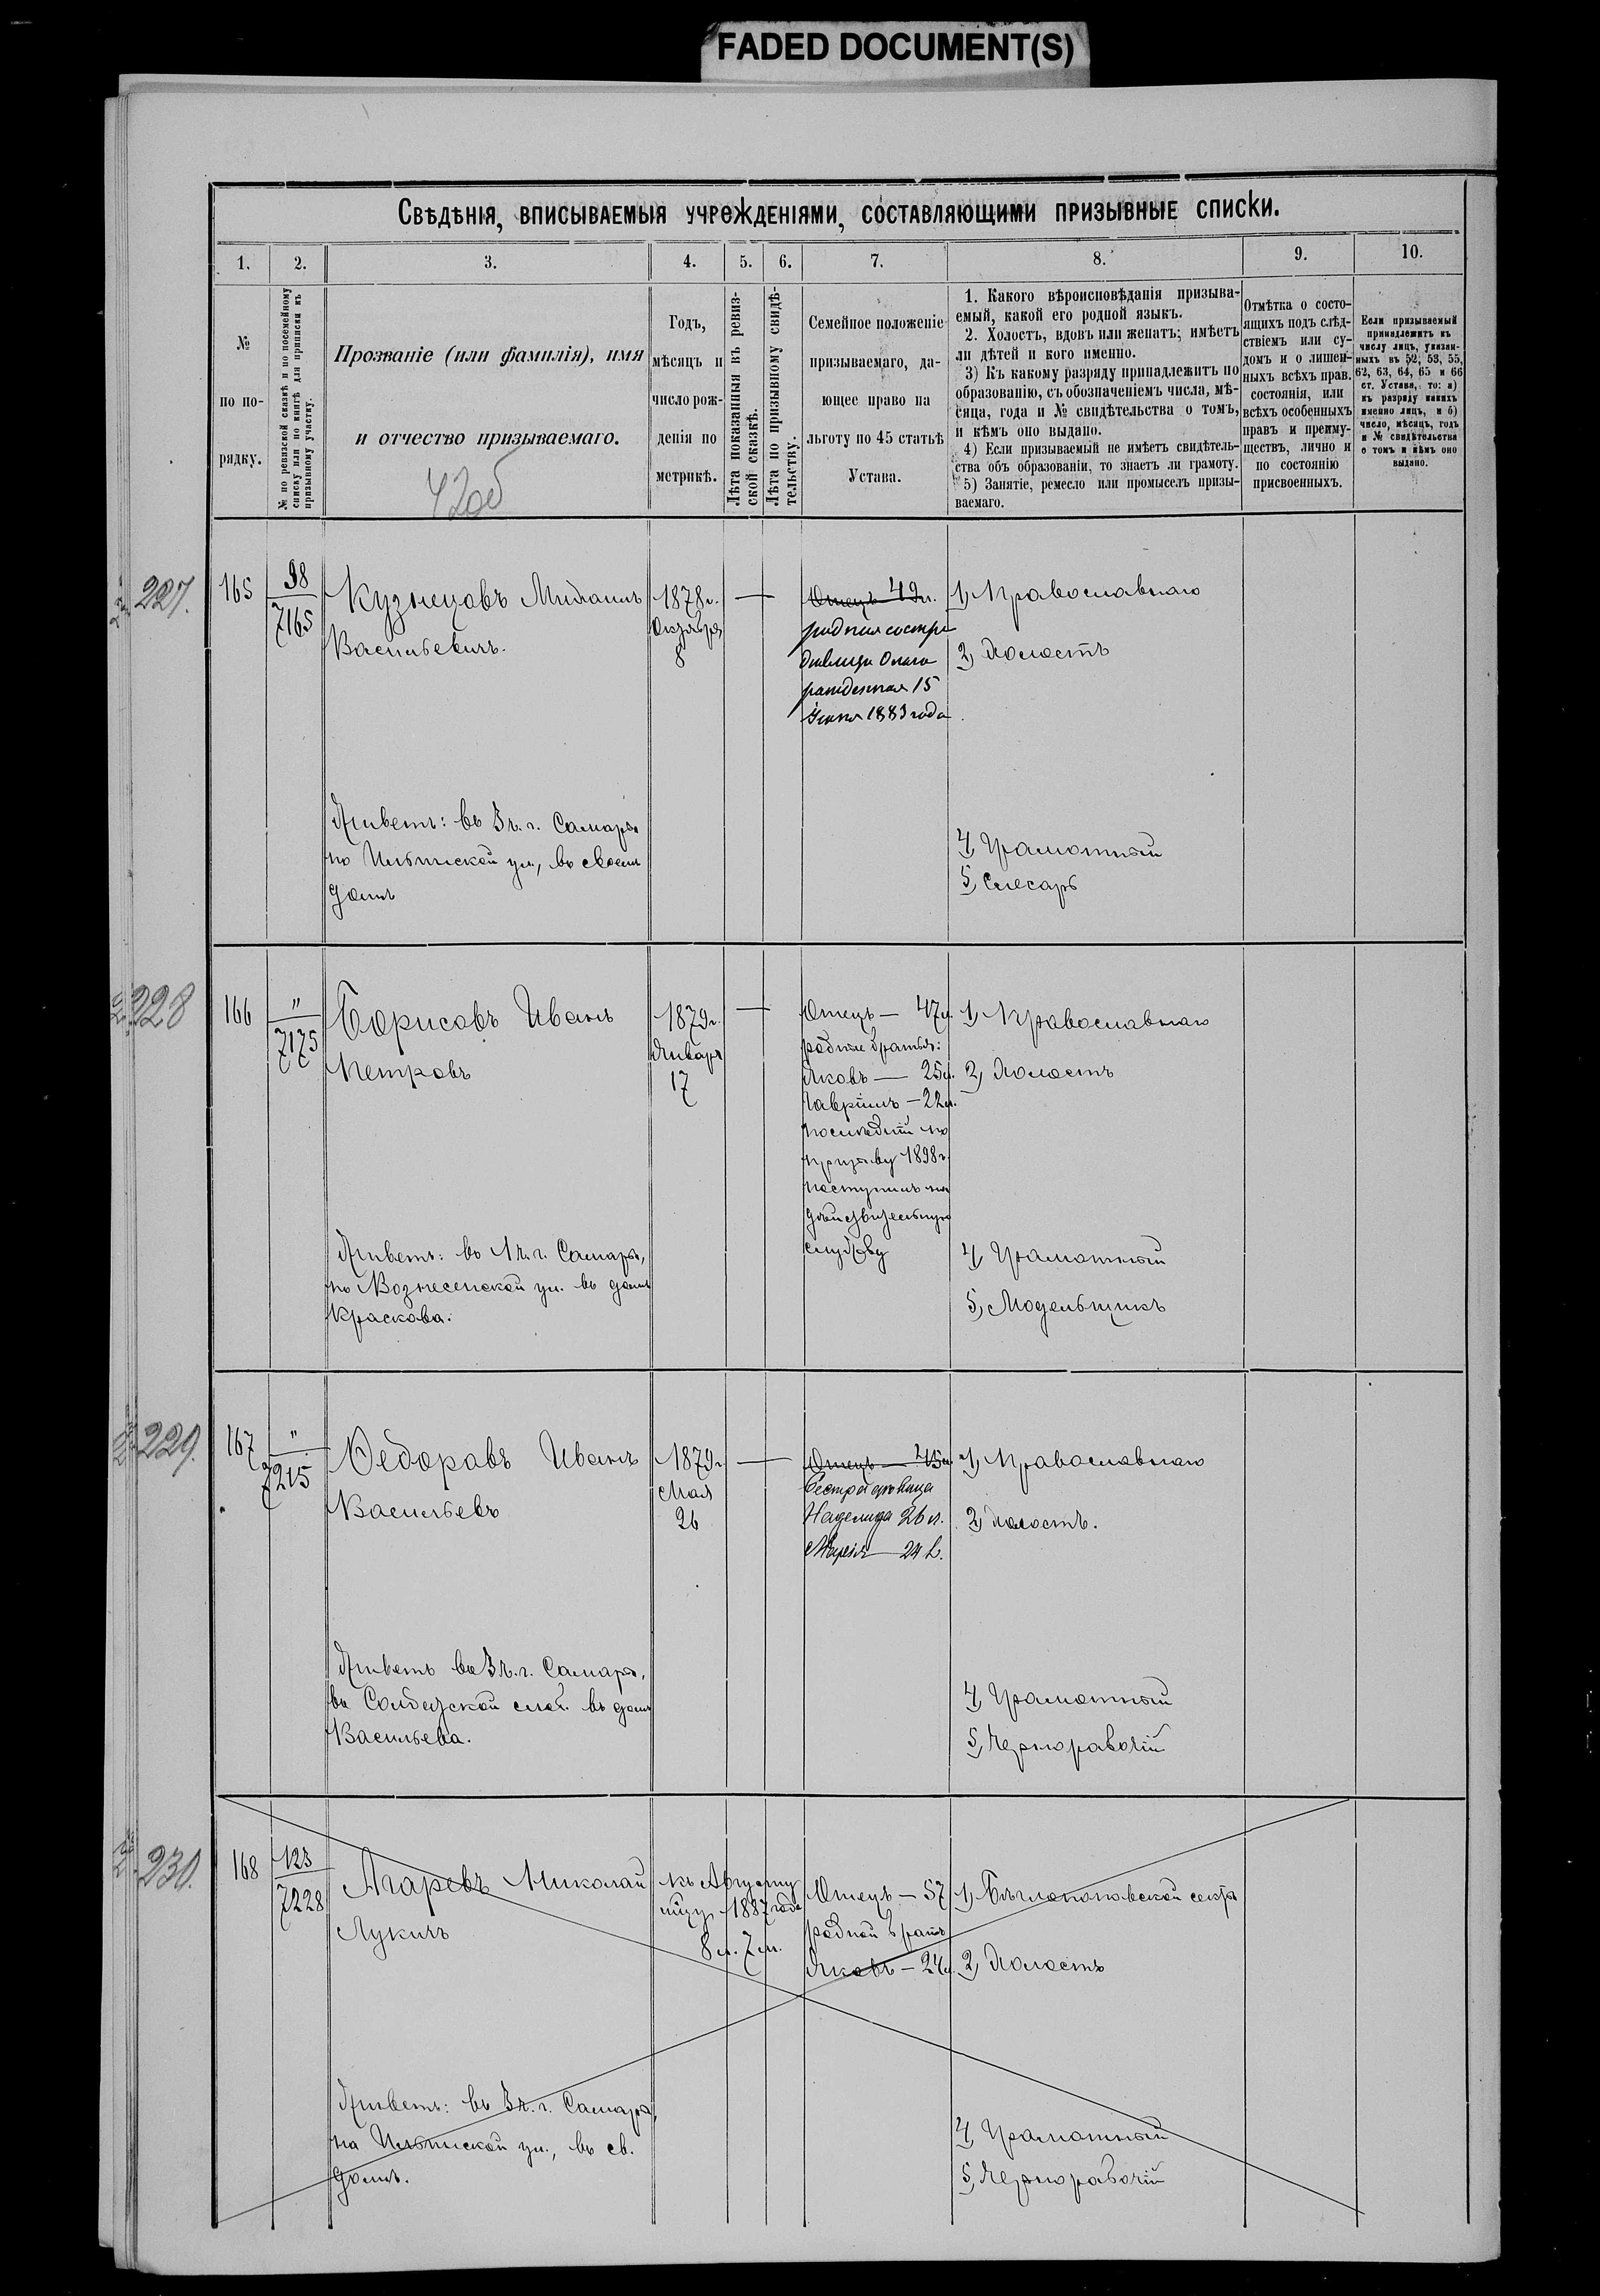 FADED DOCUMENT(S)
Свѣдѣнія, вписываемыя учрежденіями, составляющими призывные списки.
1. 2. 3. 4. 5. 6. 7. 8. 9. 10.
№
по по-
рядку.
№ по ревизской сказкѣ и по посемейному
списку или по книгѣ для приписки къ
призывному участку.
Прозваніе (или фамилія), имя
и отчество призываемаго.
420б
Годъ,
мѣсяцъ и
число рож-
денія по
метрикѣ.
Лѣта показанныя въ ревиз-
ской сказкѣ.
Лѣта по призывному свидѣ-
тельству.
Семейное положеніе
призываемаго, да-
ющее право на
льготу по 45 статьѣ
Устава.
1. Какого вѣроисповѣданія призыва-
емый, какой его родной языкъ.
2. Холостъ, вдовъ или женатъ; имѣетъ
ли дѣтей и кого именно.
3) Къ какому разряду принадлежитъ по
образованію, съ обозначеніемъ числа, мѣ-
сяца, года и № свидѣтельства о томъ,
и кѣмъ оно выдано.
4) Если призываемый не имѣетъ свидѣтель-
ства объ образованіи, то знаетъ ли грамоту.
5) Занятіе, ремесло или промыселъ призы-
ваемаго.
Отмѣтка о состо-
ящихъ подъ слѣд-
ствіемъ или су-
домъ и о лишен-
ныхъ всѣхъ прав.
состоянія, или
всѣхъ особенныхъ
правъ и преиму-
ществъ, лично и
по состоянію
присвоенныхъ.
Если призываемый
принадлежитъ къ
числу лицъ, указан-
ныхъ въ 52, 53, 55,
62, 63, 64, 65 и 66
ст. Устава, то: а)
къ разряду какихъ
именно лицъ, и б)
число, мѣсяцъ, годъ
и № свидѣтельства
о томъ и кѣмъ оно
выдано.
227.
165
98
7165
Кузнецовъ Михаилъ
Васильевичъ.
1878 г.
Октября
8
Отецъ 49 л.
родная сестра
дѣвица Ольга
рожденная 15
Іюня 1883 года
1) Православнаго
2) Холостъ
Живетъ: въ 3 ч. г. Самары
по Ильинской ул., въ своемъ
домѣ
4) Грамотный
5) Слесарь
228
166
"
7175
Борисовъ Иванъ
Петровъ
1879 г.
Января
17
Отецъ — 47 л.
родные братья:
Яковъ — 25 л.
Гавріилъ — 22 л.
послѣдній по
призыву 1898 г.
поступилъ на
дѣйствительную
службу
1) Православнаго
2) Холостъ
Живетъ: въ 1 ч. г. Самары,
по Вознесенской ул. въ домѣ
Краскова.
4) Грамотный
5) Модельщикъ
229.
167
"
7215
Ѳедоровъ Иванъ
Васильевъ
1879 г.
Мая
26
Отецъ — 45 л.
Сестра дѣвица
Надежда 26 л.
Марія — 24 л.
1) Православнаго
2) Холостъ.
Живетъ въ 3 ч. г. Самары,
въ Солдатской слоб. въ домѣ
Васильева.
4) Грамотный
5) Чернорабочій
230.
168
123
7228
Агаревъ Николай
Лукичъ
къ Августу
мѣсяцу 1887 года
8 л. 7 м.
Отецъ — 57
родной братъ
Яковъ — 24 л.
1) Бѣглопоповской секты
2) Холостъ
Живетъ: въ 3 ч. г. Самары,
на Ильинской ул., въ св.
домѣ.
4) Грамотный
5) Чернорабочій